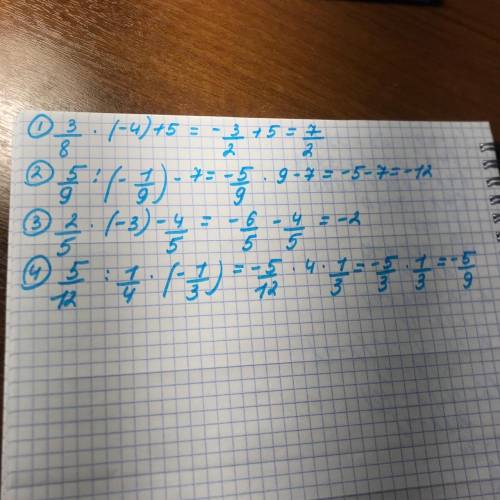 ① 3/8 · (-4)+5 = -3/2 +5 = 7/2
② 5/9 : (-1/9) - 7 = -5/9 · 9 - 7 = -5 - 7 = -12
③ 2/5 · (-3) - 4/5 = -6/5 - 4/5 = -2
④ 5/12 : 1/4 · (-1/3) = -5/12 · 4 · 1/3 = -5/3 · 1/3 = -5/9